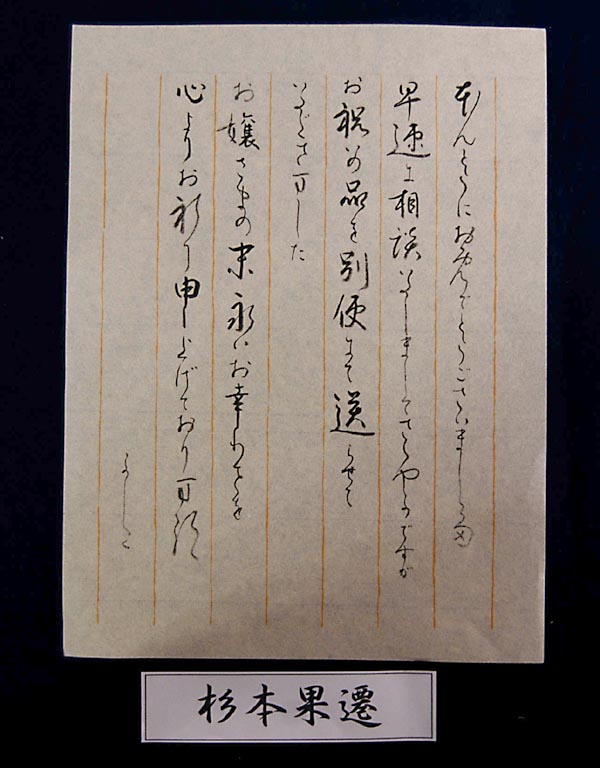 ほんとうにおめでとうございました
早速に相談いたしましてささやかですが
お祝の品を別便にて送らせて
いただきました
お嬢さまの末永いお幸わせを
心よりお祈り申し上げております
よしこ
杉本果遷